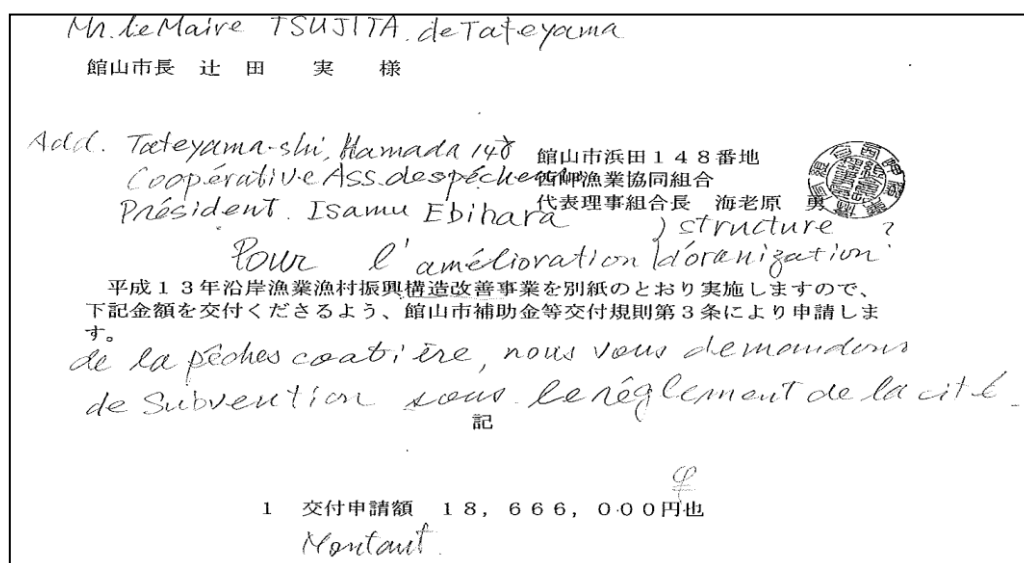 Mn. le Maire TSUJITA. de Tateyama
館山市長 辻 田 実 様
Add. Tateyama-shi, Hamada 148
館山市浜田１４８番地
Coopérative Ass. des pêcheurs
西岬漁業協同組合
Président. Isamu Ebihara
代表理事組合長 海老原 勇
structure ?
Pour l'amélioration d'oranization
平成１３年沿岸漁業漁村振興構造改善事業を別紙のとおり実施しますので、
下記金額を交付くださるよう、館山市補助金等交付規則第３条により申請しま
す。
de la pêches coatière, nous vous demandons
de Subvention sous le réglement de la cité.
記
１ 交付申請額 １８，６６６，０００円也
Montant.